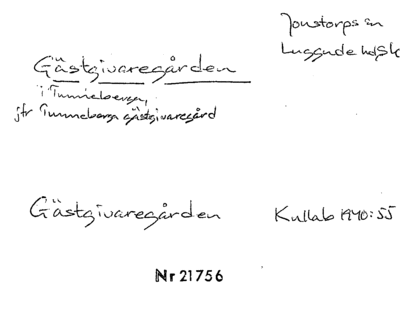 Jonstorps sn
Luggude hd Sk
Gästgivaregården
i Tunneberga,
jfr Tunneberga gästgivaregård
Gästgivaregården Kullab 1940:55
Nr 21756